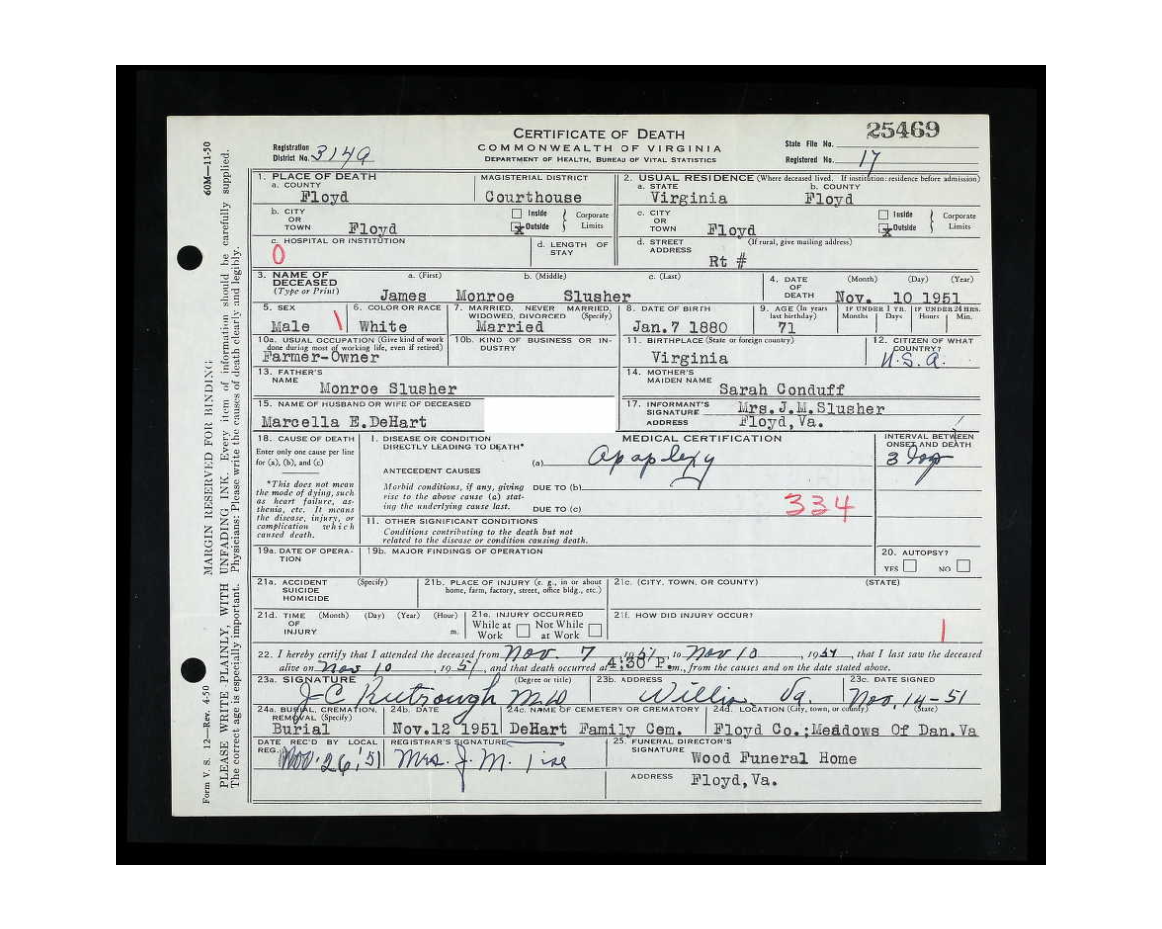 25469
CERTIFICATE OF DEATH
COMMONWEALTH OF VIRGINIA
DEPARTMENT OF HEALTH, BUREAU OF VITAL STATISTICS
Registration District No. 3149
State File No.
Registered No. 17
60M—11-50
MARGIN RESERVED FOR BINDING
PLEASE WRITE PLAINLY, WITH UNFADING INK. Every item of information should be carefully supplied.
The correct age is especially important. Physicians: Please write the causes of death clearly and legibly.
Form V. S. 12—Rev. 4-50
1. PLACE OF DEATH
a. COUNTY Floyd
MAGISTERIAL DISTRICT Courthouse
2. USUAL RESIDENCE (Where deceased lived. If institution: residence before admission)
a. STATE Virginia
b. COUNTY Floyd
b. CITY OR TOWN Floyd
Inside x Outside Corporate Limits
c. CITY OR TOWN Floyd
Inside x Outside Corporate Limits
c. HOSPITAL OR INSTITUTION
0
d. LENGTH OF STAY
d. STREET ADDRESS (If rural, give mailing address)
Rt #
3. NAME OF DECEASED (Type or Print)
a. (First) b. (Middle) c. (Last)
James Monroe Slusher
4. DATE OF DEATH (Month) (Day) (Year)
Nov. 10 1951
5. SEX Male
6. COLOR OR RACE White
7. MARRIED, NEVER MARRIED, WIDOWED, DIVORCED (Specify) Married
8. DATE OF BIRTH Jan.7 1880
9. AGE (In years last birthday) 71
IF UNDER 1 YR. Months Days
IF UNDER 24 HRS. Hours Min.
10a. USUAL OCCUPATION (Give kind of work done during most of working life, even if retired)
Farmer-Owner
10b. KIND OF BUSINESS OR INDUSTRY
11. BIRTHPLACE (State or foreign country)
Virginia
12. CITIZEN OF WHAT COUNTRY?
U.S.A.
13. FATHER'S NAME
Monroe Slusher
14. MOTHER'S MAIDEN NAME
Sarah Conduff
15. NAME OF HUSBAND OR WIFE OF DECEASED
Marcella E.DeHart
17. INFORMANT'S SIGNATURE Mrs.J.M.Slusher
ADDRESS Floyd,Va.
18. CAUSE OF DEATH
Enter only one cause per line for (a), (b), and (c)
*This does not mean the mode of dying, such as heart failure, asthenia, etc. It means the disease, injury, or complication which caused death.
MEDICAL CERTIFICATION
I. DISEASE OR CONDITION DIRECTLY LEADING TO DEATH*
(a) Apaplexy
INTERVAL BETWEEN ONSET AND DEATH
3
ANTECEDENT CAUSES
Morbid conditions, if any, giving rise to the above cause (a) stating the underlying cause last.
DUE TO (b)
DUE TO (c)
334
II. OTHER SIGNIFICANT CONDITIONS
Conditions contributing to the death but not related to the disease or condition causing death.
19a. DATE OF OPERATION
19b. MAJOR FINDINGS OF OPERATION
20. AUTOPSY?
YES NO
21a. ACCIDENT SUICIDE HOMICIDE (Specify)
21b. PLACE OF INJURY (e. g., in or about home, farm, factory, street, office bldg., etc.)
21c. (CITY, TOWN, OR COUNTY) (STATE)
21d. TIME OF INJURY (Month) (Day) (Year) (Hour) m.
21e. INJURY OCCURRED
While at Work Not While at Work
21f. HOW DID INJURY OCCUR?
22. I hereby certify that I attended the deceased from Nov. 7, 1951, to Nov 10, 1951, that I last saw the deceased
alive on Nov 10, 1951, and that death occurred at 4:30 P.m., from the causes and on the date stated above.
23a. SIGNATURE (Degree or title)
M.D
23b. ADDRESS
Willis Va.
23c. DATE SIGNED
Nov. 14-51
24a. BURIAL, CREMATION, REMOVAL (Specify)
Burial
24b. DATE
Nov.12 1951
24c. NAME OF CEMETERY OR CREMATORY
DeHart Family Cem.
24d. LOCATION (City, town, or county) (State)
Floyd Co.;Meadows Of Dan.Va
DATE REC'D BY LOCAL REG.
Nov. 26, 51
REGISTRAR'S SIGNATURE
Mrs. J. M.
25. FUNERAL DIRECTOR'S SIGNATURE
Wood Funeral Home
ADDRESS Floyd,Va.